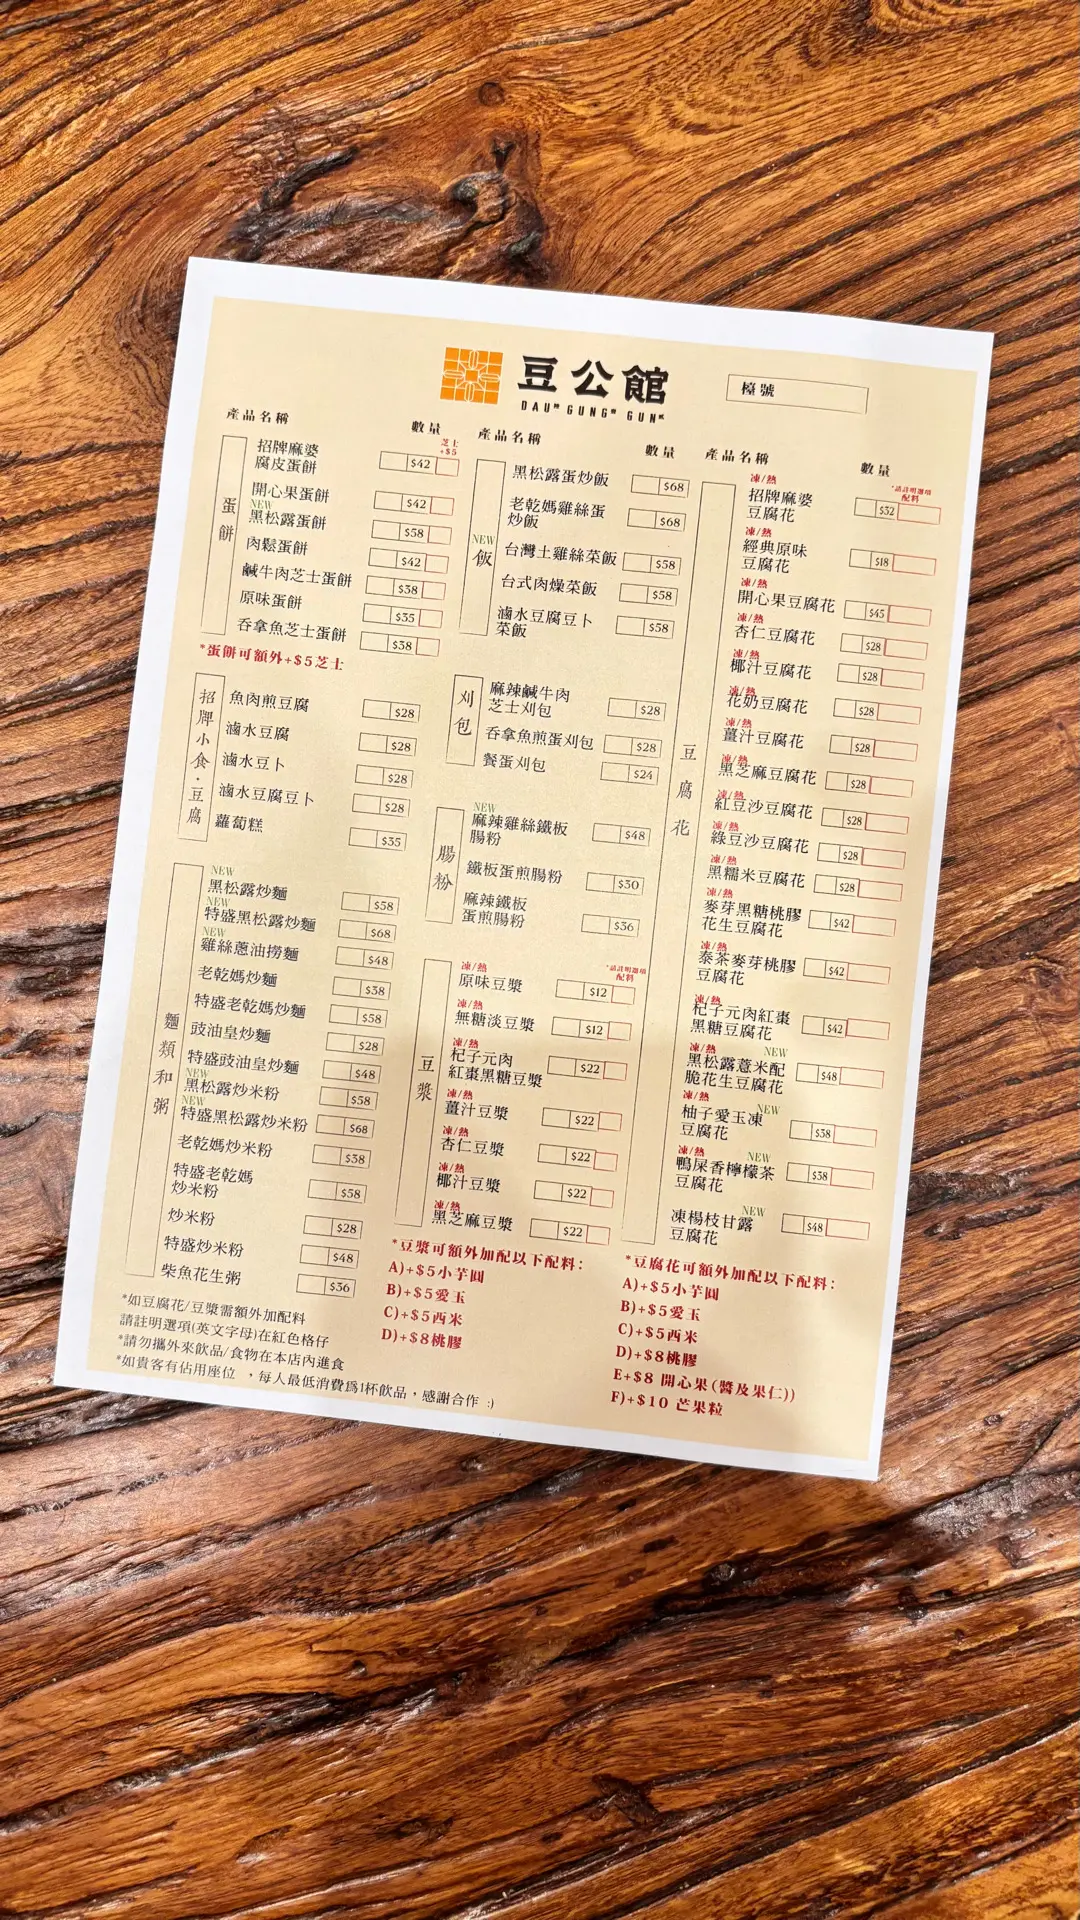 豆公館
DAU GUNG GUN
檯號
產品名稱
數量
芝士
+$5
蛋餅
招牌麻婆
腐皮蛋餅 $42
開心果蛋餅 $42
NEW
黑松露蛋餅 $58
肉鬆蛋餅 $42
鹹牛肉芝士蛋餅 $38
原味蛋餅 $35
吞拿魚芝士蛋餅 $38
*蛋餅可額外+$5芝士
招牌小食·豆腐
魚肉煎豆腐 $28
滷水豆腐 $28
滷水豆卜 $28
滷水豆腐豆卜 $28
蘿蔔糕 $35
麵類和粥
NEW
黑松露炒麵 $58
NEW
特盛黑松露炒麵 $68
NEW
雞絲蔥油撈麵 $48
老乾媽炒麵 $38
特盛老乾媽炒麵 $58
豉油皇炒麵 $28
特盛豉油皇炒麵 $48
NEW
黑松露炒米粉 $58
NEW
特盛黑松露炒米粉 $68
老乾媽炒米粉 $38
特盛老乾媽
炒米粉 $58
炒米粉 $28
特盛炒米粉 $48
柴魚花生粥 $36
*如豆腐花/豆漿需額外加配料
請註明選項(英文字母)在紅色格仔
*請勿攜外來飲品/食物在本店內進食
*如貴客有佔用座位 ，每人最低消費為1杯飲品，感謝合作 :)
產品名稱
數量
NEW
飯
黑松露蛋炒飯 $68
老乾媽雞絲蛋
炒飯 $68
台灣土雞絲菜飯 $58
台式肉燥菜飯 $58
滷水豆腐豆卜
菜飯 $58
刈包
麻辣鹹牛肉
芝士刈包 $28
吞拿魚煎蛋刈包 $28
餐蛋刈包 $24
腸粉
NEW
麻辣雞絲鐵板
腸粉 $48
鐵板蛋煎腸粉 $30
麻辣鐵板
蛋煎腸粉 $36
豆漿
*請註明選項
配料
凍/熱
原味豆漿 $12
凍/熱
無糖淡豆漿 $12
凍/熱
杞子元肉
紅棗黑糖豆漿 $22
凍/熱
薑汁豆漿 $22
凍/熱
杏仁豆漿 $22
凍/熱
椰汁豆漿 $22
凍/熱
黑芝麻豆漿 $22
*豆漿可額外加配以下配料：
A)+$5小芋圓
B)+$5愛玉
C)+$5西米
D)+$8桃膠
產品名稱
數量
*請註明選項
配料
豆腐花
凍/熱
招牌麻婆
豆腐花 $32
凍/熱
經典原味
豆腐花 $18
凍/熱
開心果豆腐花 $45
凍/熱
杏仁豆腐花 $28
凍/熱
椰汁豆腐花 $28
凍/熱
花奶豆腐花 $28
凍/熱
薑汁豆腐花 $28
凍/熱
黑芝麻豆腐花 $28
凍/熱
紅豆沙豆腐花 $28
凍/熱
綠豆沙豆腐花 $28
凍/熱
黑糯米豆腐花 $28
凍/熱
麥芽黑糖桃膠
花生豆腐花 $42
凍/熱
泰茶麥芽桃膠
豆腐花 $42
凍/熱
杞子元肉紅棗
黑糖豆腐花 $42
凍/熱 NEW
黑松露薏米配
脆花生豆腐花 $48
凍/熱 NEW
柚子愛玉凍
豆腐花 $38
凍/熱 NEW
鴨屎香檸檬茶
豆腐花 $38
NEW
凍楊枝甘露
豆腐花 $48
*豆腐花可額外加配以下配料：
A)+$5小芋圓
B)+$5愛玉
C)+$5西米
D)+$8桃膠
E+$8 開心果(醬及果仁))
F)+$10 芒果粒